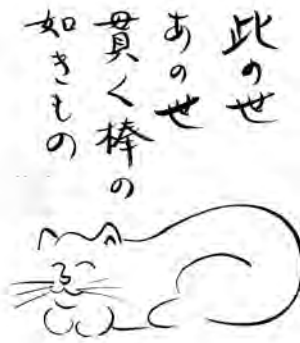 此の世
あの世
貫く棒の
如きもの